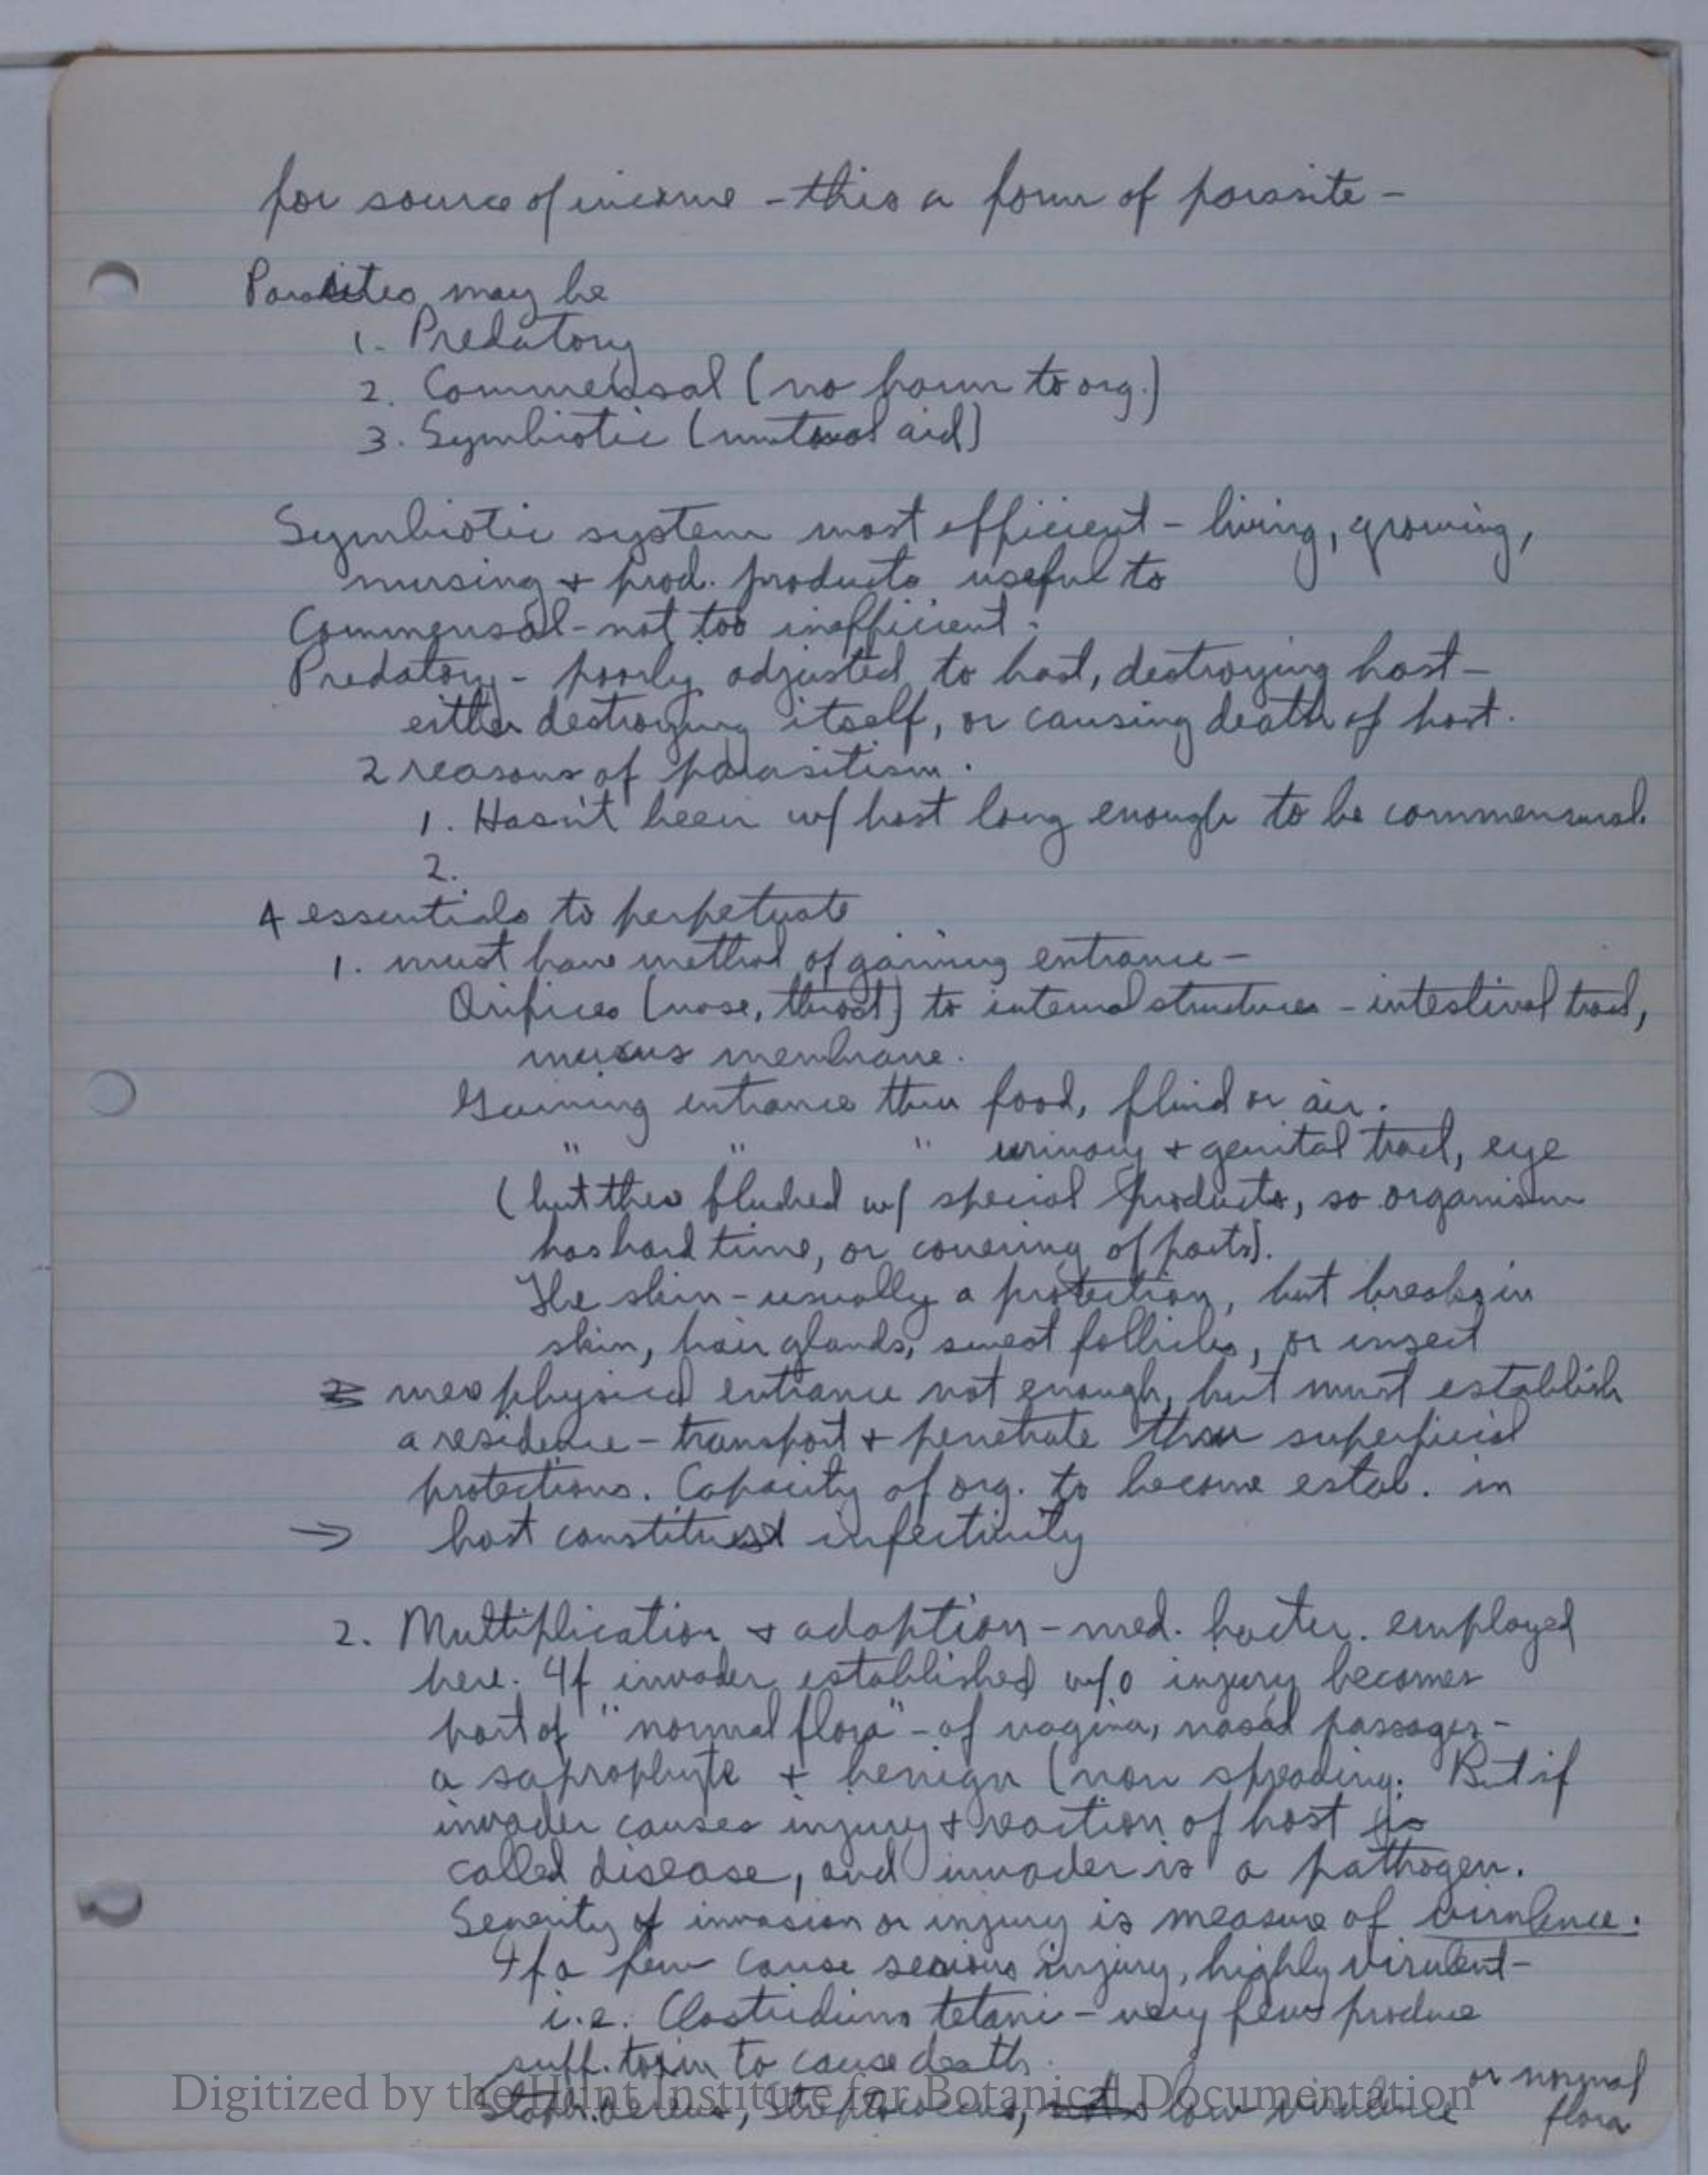 for source of income - this a form of parasite -
Parasites may be
1. Predatory
2. Commensal (no harm to org.)
3. Symbiotic (mutual aid)
Symbiotic system most efficient - living, growing,
nursing + prod. products useful to
Commensal - not too inefficient.
Predatory - poorly adjusted to host, destroying host -
either destroying itself, or causing death of host.
2 reasons of parasitism.
1. Hasn't been w/ host long enough to be commensural.
2.
4 essentials to perpetuate
1. must have method of gaining entrance -
Orifices (nose, throat) to internal structures - intestinal tract,
mucus membrane.
Gaining entrance thru food, fluid or air.
" " " urinary + genital tract, eye
(but these flushed w/ special products, so organism
has hard time, or covering of parts).
The skin - usually a protection, but breaks in
skin, hair glands, sweat follicles, or insect
mere physical entrance not enough, but must establish
a residence - transport + penetrate thru superficial
protections. Capacity of org. to become estab. in
→ host constitutes infectivity
2. Multiplication & adaption - med. bacter. employed
here. If invader established w/o injury becomes
part of "normal flora" - of vagina, nasal passages -
a saprophyte + benign (non spreading. But if
invader causes injury + reaction of host is
called disease, and invader is a pathogen.
Severity of invasion or injury is measure of virulence.
If a few cause serious injury, highly virulent -
i.e. Clostridium tetani - very few produce
suff. toxin to cause death.
Staph. aereus, Streptococcus, low virulence or normal
flora
Digitized by the Hunt Institute for Botanical Documentation